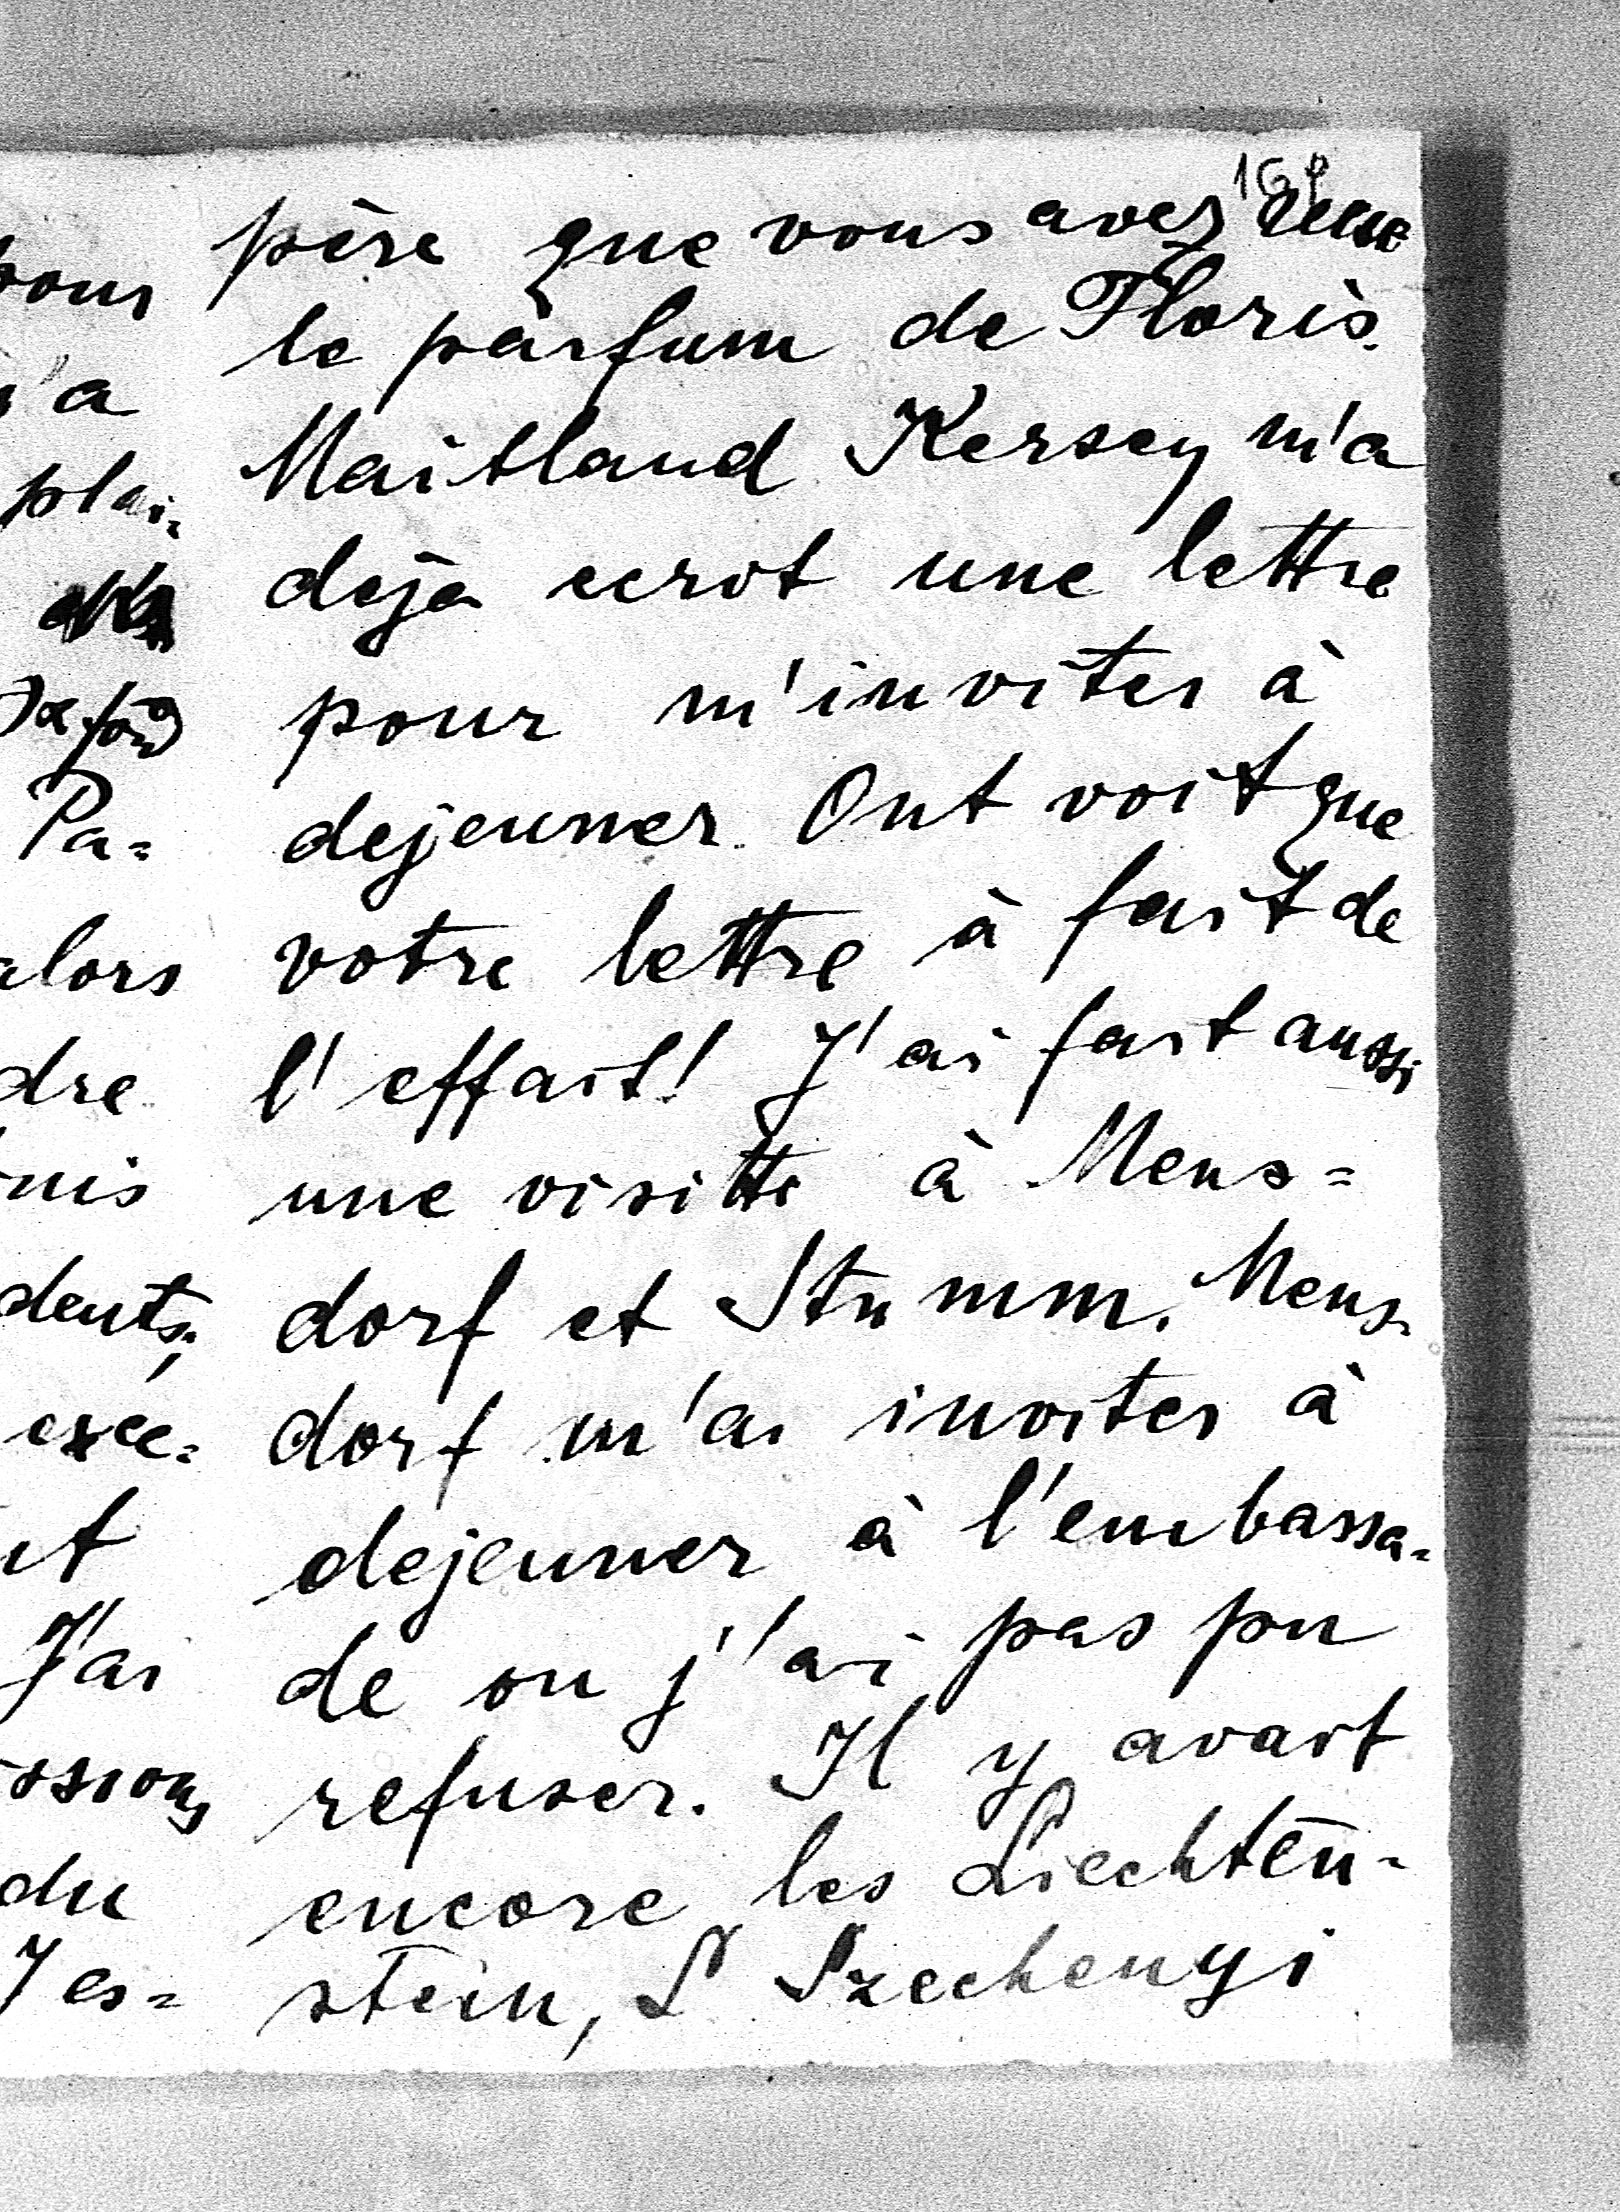 père que vous avez
le parfum de Floris.
Maitland Kersey m'a
dejà ecrot une lettre
pour m'inviter à
dejeuner. Ont voit que
votre lettre à fait de
l'effait! J'ai fait aussi
une visitte à Mens=
dorf et Stumm. Mens-
dorf m'ai inviter à
dejeuner à l'embassa-
de ou j'ai pas pu
refuser. Il y avait
encore les Liechten-
stein, L Szechenyi
pour
'a
plai-
Oxford
Pa=
alors
dre
nis
dents,
exce=
J'ai
ssions
du
Jes=